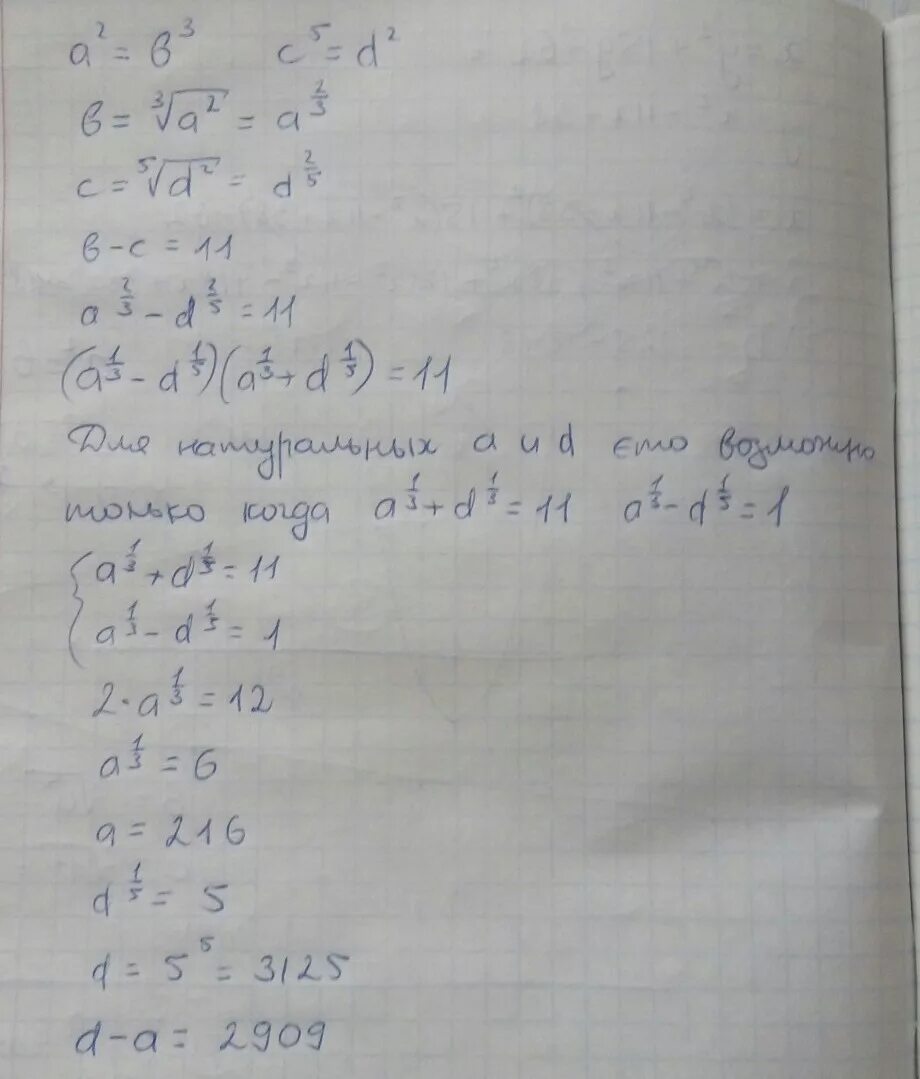 a² = в³   c⁵ = d²
в = ∛a² = a^(2/3)
c = ⁵√d² = d^(2/5)
в - c = 11
a^(2/3) - d^(2/5) = 11
(a^(1/3) - d^(1/5))(a^(1/3) + d^(1/5)) = 11
Для натуральных a и d єто возможно
только когда a^(1/3) + d^(1/5) = 11   a^(1/3) - d^(1/5) = 1
{ a^(1/3) + d^(1/5) = 11
a^(1/3) - d^(1/5) = 1
2·a^(1/3) = 12
a^(1/3) = 6
a = 216
d^(1/5) = 5
d = 5⁵ = 3125
d - a = 2909